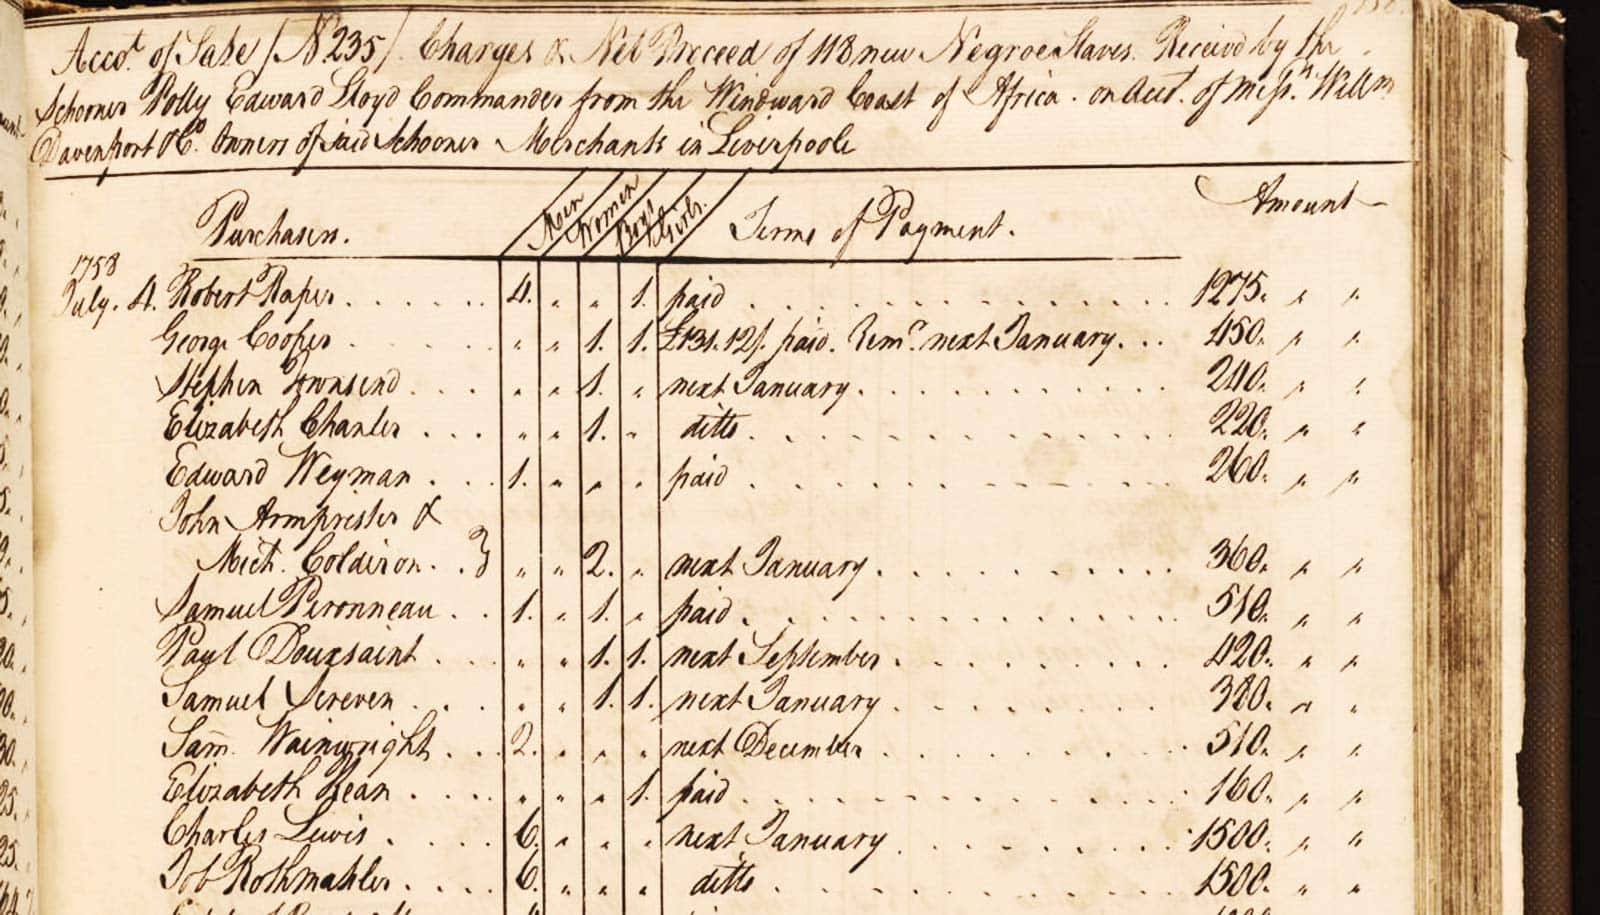 Accot. of Sale / N.235 / Charges & Net Proceed of 118 new Negroe Slaves. Receivd by the
Schooner Polly Edward Lloyd Commander from the Windward Coast of Africa. on Acct. of Messrs. Willm
Davenport & Co. Owners of said Schooner Merchants in Liverpoole
Purchasers. Men Women Boys Girls. Terms of Payment. Amount
1758
July. 4. Robert Raper . . . . . . 4. " " 1. paid . . . . . . . . . . . 1275. " "
George Cooper . . . . . . " " 1. 1. £131.12/. paid. Remr. next January. . . 450. " "
Stephen Townsend . . . . " " 1. " next January . . . . . . . . . 240. " "
Elizabeth Chanler . . . " " 1. " ditto . . . . . . . . . . . 220. " "
Edward Weyman . . . 1. " " " paid . . . . . . . . . . . 260. " "
John Armprister &
Mich. Coldiron . . } " " 2. " next January . . . . . . . . 360. " "
Samuel Peronneau . . 1. " 1. " paid . . . . . . . . . . . 510. " "
Paul Douxsaint . . . " " 1. 1. next September . . . . . . . . 420. " "
Samuel Screven . . . " " 1. 1. next January . . . . . . . . 380. " "
Sam. Wainwright . . . 2. " " " next December . . . . . . . . 510. " "
Elizabeth Bean . . . . " " " 1. paid . . . . . . . . . . . 160. " "
Charles Lewis . . . . 6. " " " next January . . . . . . . . 1500. " "
Job Rothmahler . . . . 6. " " " ditto . . . . . . . . . . 1500. " "